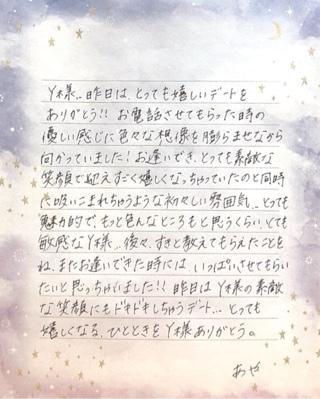 Y様.. 昨日は、とっても嬉しいデートを
ありがとう!! お電話させてもらった時の
優しい感じに色々な想像を膨らませながら
向かっていました! お逢いでき、とっても素敵な
笑顔で迎えすごく嬉しくなっちゃっていたのと同時
に吸いこまれちゃうような初々しい雰囲気... とっても
魅力的で、もっと色んなところもと思うくらい、とても
敏感なY様.. 後々、すきと教えてもらえたことを
ね、またお逢いできた時には、いっぱいさせてもらい
たいと思っちゃいました!! 昨日はY様の素敵
な笑顔にもドキドキしちゃうデート... とっても
嬉しくなる、ひとときをY様ありがとう。
あや